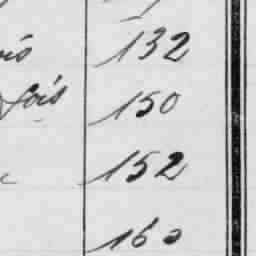 132
fois 150
152
160